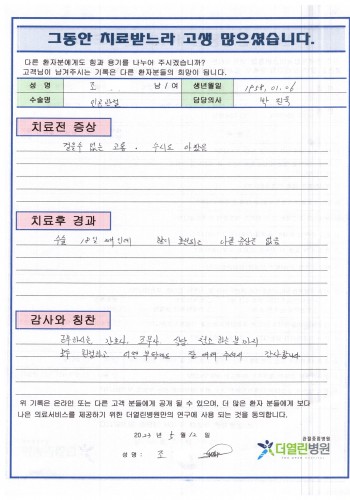 그동안 치료받느라 고생 많으셨습니다.
다른 환자분에게도 힘과 용기를 나누어 주시겠습니까?
고객님이 남겨주시는 기록은 다른 환자분들의 희망이 됩니다.
성 명 조 남 / 여 생년월일 1958. 01. 06
수술명 인공관절 담당의사 박
치료전 증상
걸을수 없는 고통. 수시로 아팠음
치료후 경과
수술 18일 째인데 많이 호전되고 다른 증상은 없음
감사와 칭찬
간호사, 식당 청소 하는 분 까지
모두 친절하고 어떤 부탁도 잘 감사합니다
위 기록은 온라인 또는 다른 고객 분들에게 공개 될 수 있으며, 더 많은 환자 분들에게 보다
나은 의료서비스를 제공하기 위한 더열린병원만의 연구에 사용 되는 것을 동의합니다.
2023 년 5 월 12 일
성 명 : 조
관절중점병원
더열린병원